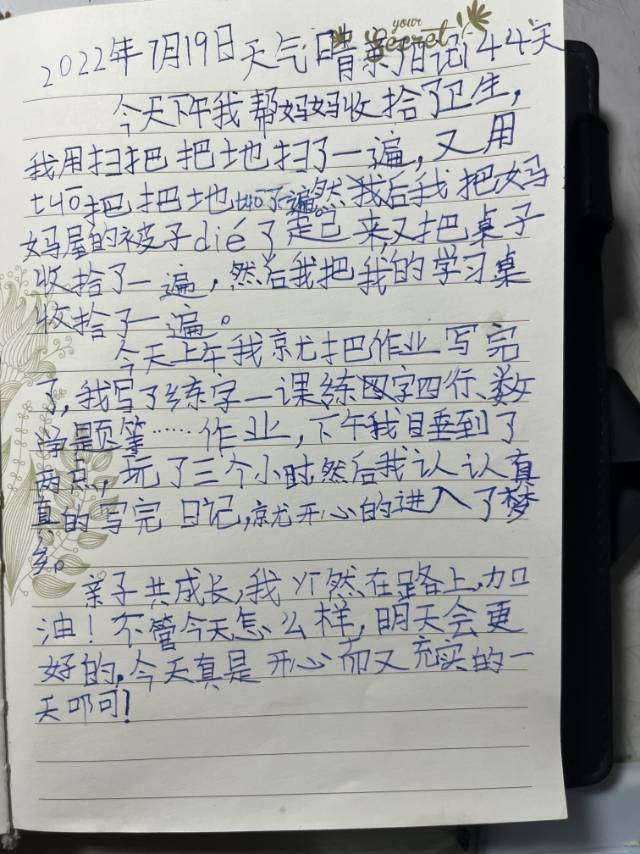 your
Secret
2022年7月19日天气晴亲子日记44天
今天下午我帮妈妈收拾了卫生,
我用扫把把地扫了一遍,又用
tuō把把地tuō了遍。然后我把妈
妈屋的被子dié了起来,又把桌子
收拾了一遍,然后我把我的学习桌
收拾了一遍。
今天上午我就把作业写完
了,我写了练字一课练字四行、数
学题等……作业,下午我目垂到了
两点,玩了三个小时然后我认认真
真的写完日记,就开心的进入了梦
乡。
亲子共成长,我yī然在路上,加
油!不管今天怎么样,明天会更
好的,今天真是开心而又充实的一
天叩可!